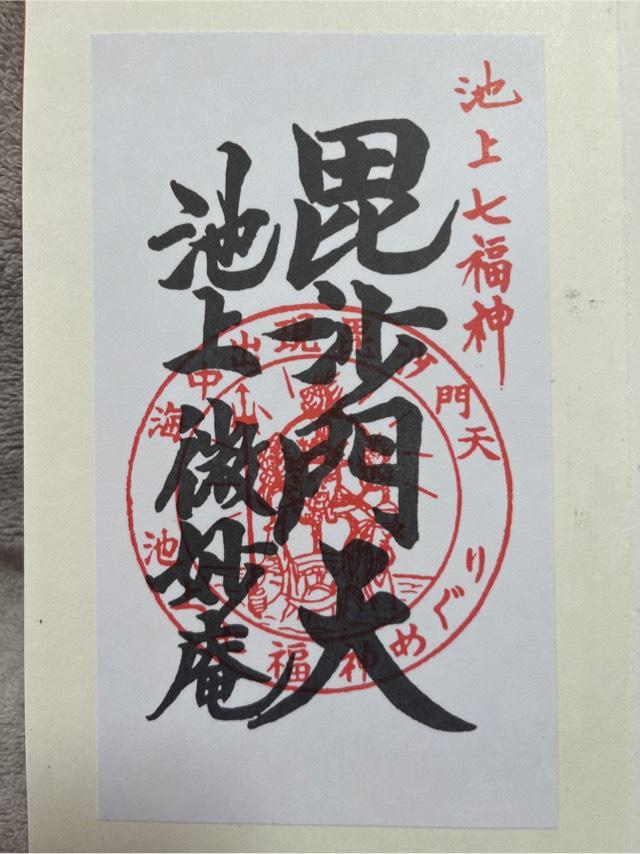 池上七福神
毘沙門天
池上微妙庵
海中出現毘沙門天
池 福神めぐり